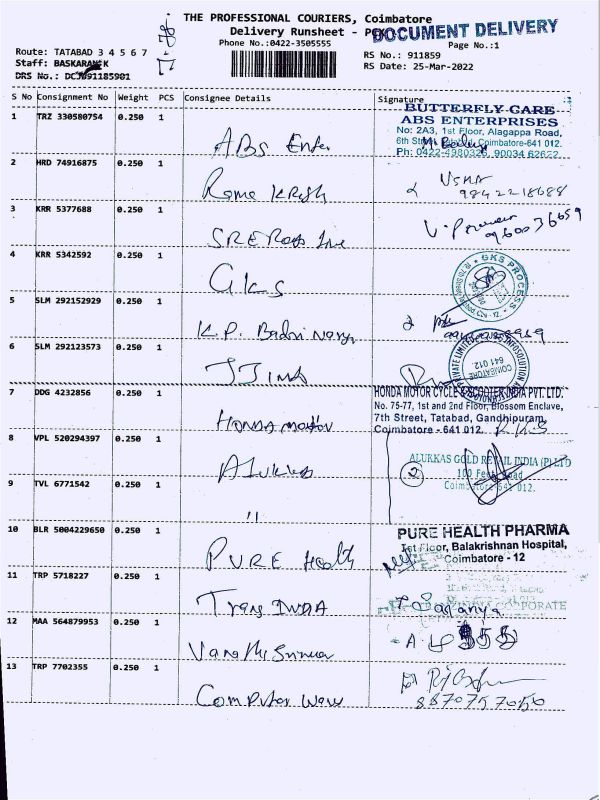 THE PROFESSIONAL COURIERS, Coimbatore
Delivery Runsheet - 
DOCUMENT DELIVERY
Phone No.:0422-3505555
Page No.:1
Route: TATABAD 3 4 5 6 7
RS No.: 911859
Staff: BASKARAN K
RS Date: 25-Mar-2022
DRS No.:
S No Consignment No Weight PCS Consignee Details Signature
1 TRZ 330580754 0.250 1 ABS Enter
BUTTERFLY CARE
ABS ENTERPRISES
No: 2A3, 1st Floor, Alagappa Road,
6th Street, Coimbatore-641 012.
Ph: 0422-4980326, 90034 62622
2 HRD 74916875 0.250 1 Rama Krish
Usha
9842218688
3 KRR 5377688 0.250 1
4 KRR 5342592 0.250 1 GKS
GKS PROCESS
5 SLM 292152929 0.250 1 K.P. Badri Naray
6 SLM 292123573 0.250 1
COIMBATORE
641 012.
7 DDG 4232856 0.250 1 Honda motor
HONDA MOTOR CYCLE & SCOOTER INDIA PVT. LTD.
No. 75-77, 1st and 2nd Floor, Blossom Enclave,
7th Street, Tatabad, Gandhipuram,
Coimbatore - 641 012.
8 VPL 520294397 0.250 1 Alukkas
ALUKKAS GOLD RETAIL INDIA (P) LTD
100 Feet Road
Coimbatore 641 012.
9 TVL 6771542 0.250 1 "
10 BLR 5004229650 0.250 1 PURE Health
PURE HEALTH PHARMA
1st Floor, Balakrishnan Hospital,
Coimbatore - 12
11 TRP 5718227 0.250 1 Trans INDIA
CORPORATE
12 MAA 564879953 0.250 1
13 TRP 7702355 0.250 1 Computer
8870757050